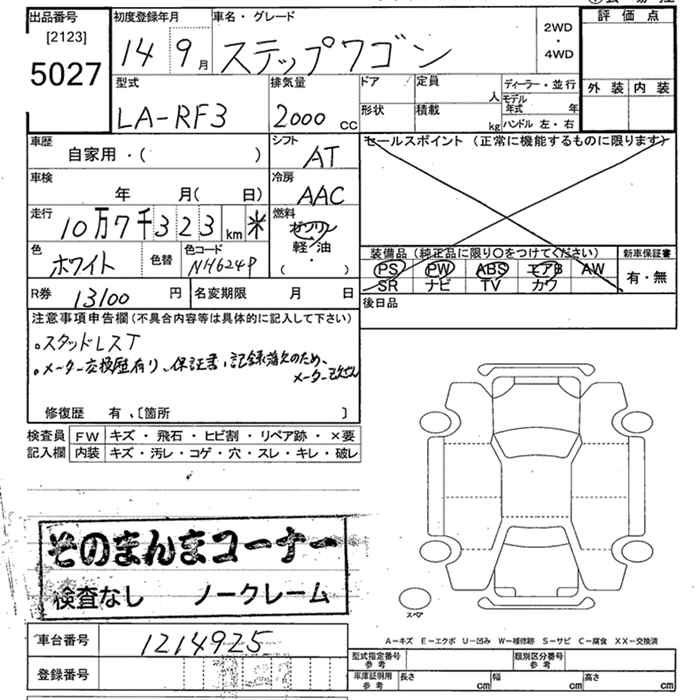 出品番号 初度登録年月 車名・グレード 2WD・4WD 評価点
[2123]
5027 14 9月 ステップワゴン
外装 内装
型式 排気量 ドア 定員 人 ディーラー・並行
LA-RF3 2000cc 形状 積載 kg モデル年式 年
ハンドル 左・右
車歴 シフト セールスポイント (正常に機能するものに限ります)
自家用・( ) AT
車検 冷房
年 月( 日) AAC
走行 燃料
10万7千323km * ガソリン
軽・油
( ・ )
色 色替 色コード
ホワイト NH624P
装備品(純正品に限り○をつけてください) 新車保証書
PS PW ABS エアB AW 有・無
SR ナビ TV カワ
R券 13100円 名変期限 月 日 後日品
注意事項申告欄(不具合内容等は具体的に記入して下さい)
。スタッドレスT
。メーター交換歴有り、保証書、記録簿欠のため、
メーター改ざん
修復歴 有、〔箇所 〕
検査員 FW キズ・飛石・ヒビ割・リペア跡・×要
記入欄 内装 キズ・汚レ・コゲ・穴・スレ・キレ・破レ
そのまんまコーナー
検査なし ノークレーム
スペア
A-キズ E-エクボ U-凹み W-補修跡 S-サビ C-腐食 XX-交換済
車台番号 1214925
型式指定番号 参考 類別区分番号 参考
登録番号
車庫証明用 参考 長さ cm 幅 cm 高さ cm